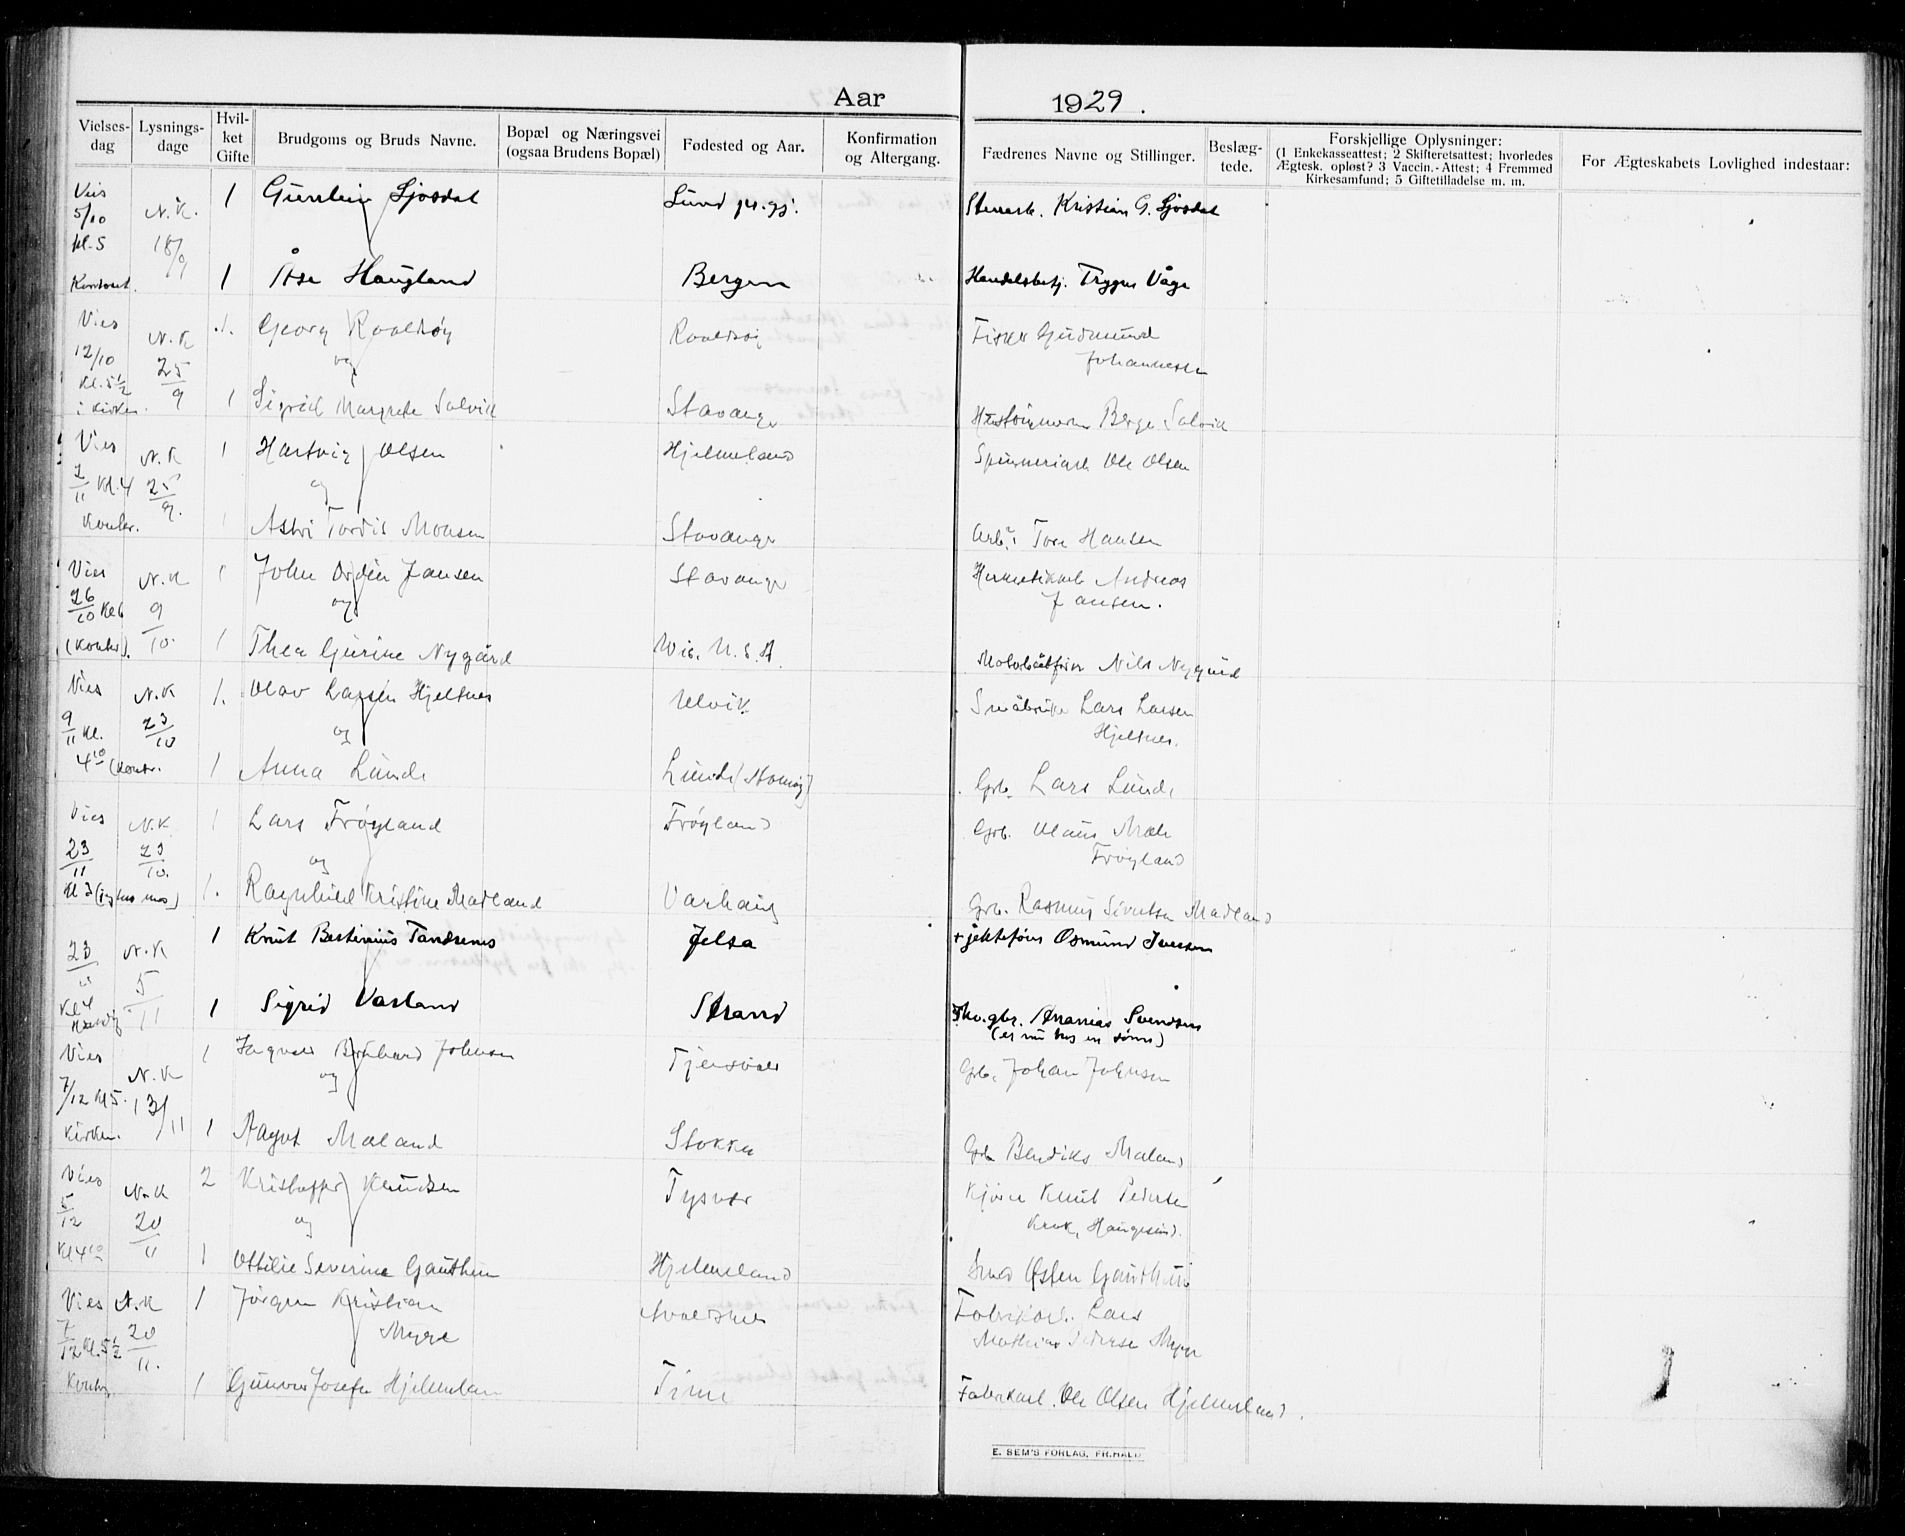 Aar 1929.
Vielses-dag
Lysnings-dage
Hvil-ket Gifte
Brudgoms og Bruds Navne.
Bopæl og Næringsvei (ogsaa Brudens Bopæl)
Fødested og Aar.
Konfirmation og Altergang.
Fædrenes Navne og Stillinger.
Beslæg-tede.
Forskjellige Oplysninger: (1 Enkekasseattest; 2 Skifteretsattest; hvorledes Ægtesk. opløst? 3 Vaccin.-Attest; 4 Fremmed Kirkesamfund; 5 Giftetilladelse m. m.
For Ægteskabets Lovlighed indestaar:
Vies N.K. 1 Sjøsdal Lund Kristian G. Sjøsdal
5/10 18/9
kl. 5
Kontoret. 1 Åse Haugland Bergen Handelsbetj. Trygve Våge
Vies N.K 1. Georg Roaldsøy Roaldsøy Fisker Gudmund
12/10 25/9 og Johannessen
Kl. 5 1/2
i kirken. 1 Sigrid Margrete Solvik Stavanger Berge Solvik
Vies N.K 1 Hartvig Olsen Hjelmeland Spinneriarb Ole Olsen
2/11 Kl. 4 25/9. og
Kontor. 1 Astri Tordis Monsen Stavanger Arb. Tore Hansen
Vies N.K 1 John Jansen Stavanger Hermetikarb Andreas
26/10 Kl 6 9/10. og Jansen.
(Kontor). 1 Thea Gurine Nygård Wis. U.S.A. Nils Nygård
Vies N.K 1. Olav Larsen Hjeltnes Ulvik Småbruker Lars Larsen
9/11 Kl. 23/10 og Hjeltnes.
4 10 (Kontor. 1 Anna Lunde Lunde Grb. Lars Lunde
Vies N.K. 1 Lars Frøyland Frøyland Grb. Olaus Mæle
23/11 23/10. og Frøyland
Kl 3 1. Ragnhild Kristine Madland Varhaug Grb. Rasmus Sivertsen Madland
23 N.K 1 Knut Bertinius Jelsa + jektefører Osmund Iversen
5/11
Kl 4 1 Sigrid Strand Ananias Svendsen
(er nu hos en sønn)
Vies N.K 1 Ingvald Johnsen Grb. Johan Johnsen
7/12 Kl 5. 13/11 og
Kirken. 1 Aagot Mæland Stokka Grb Bendiks Mæland
Vies N.K 2 Kristoffer Knudsen Tysvær Kjører Knut Pedersen
5/12 20/11 og Haugesund).
Kl 4 10 1 Ottilie Severine Gauthun Hjelmeland Smed Østen Gauthun
Vies N.K 1 Jørgen Kristian Avaldsnes Fabrikarb. Lars
7/12 Kl. 5 1/2 20/11. Myge
Kontor. 1 Josefa Hjelmeland Time Fabrikarb. Ole Olsen Hjelmeland.
E. SEM'S FORLAG, FR.HALD